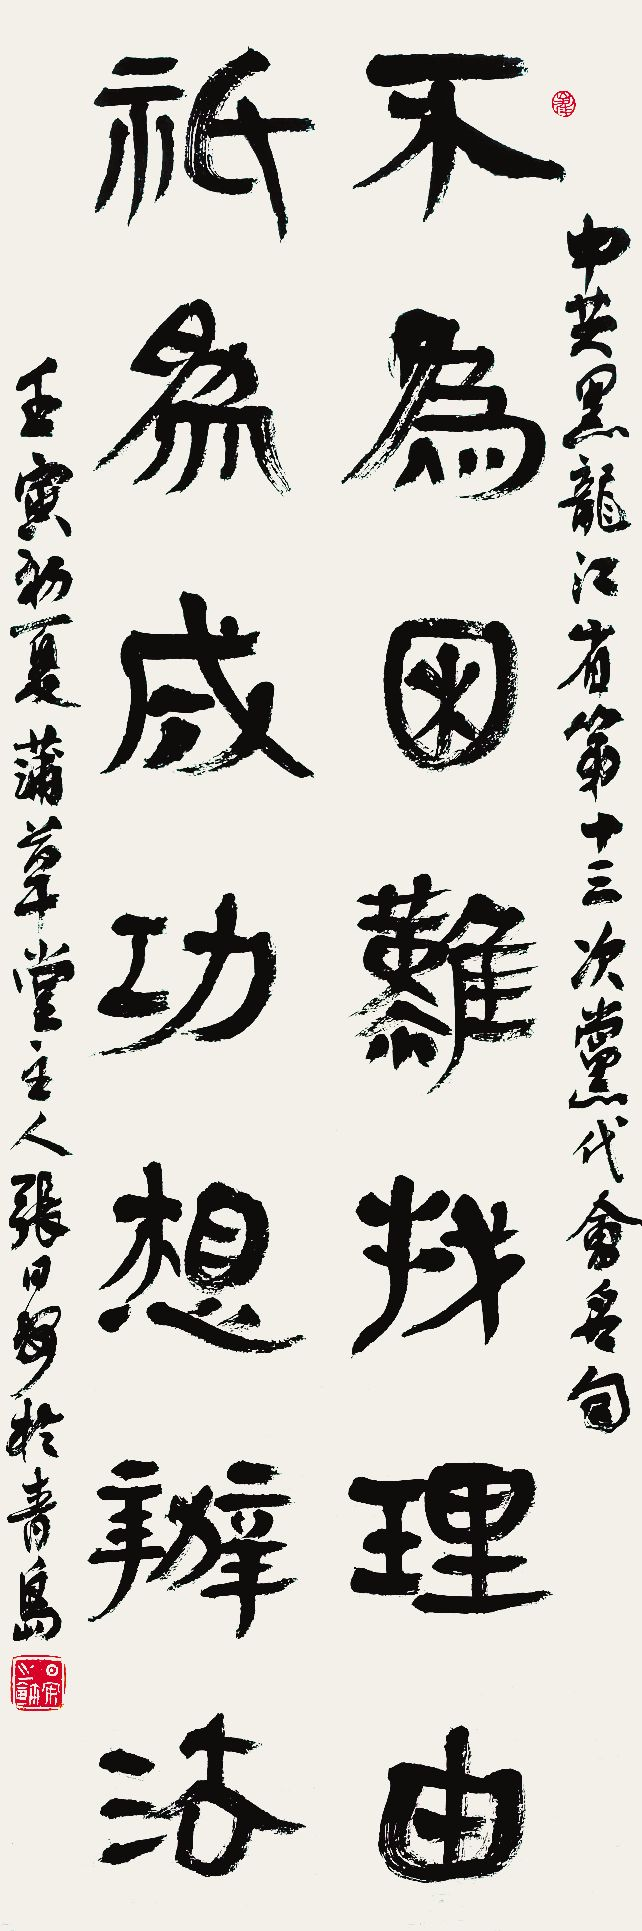 中共黑龍江省第十三次黨代會名句
不為困難找理由
祇為成功想辦法
壬寅初夏蒲草堂主人張日安於青島